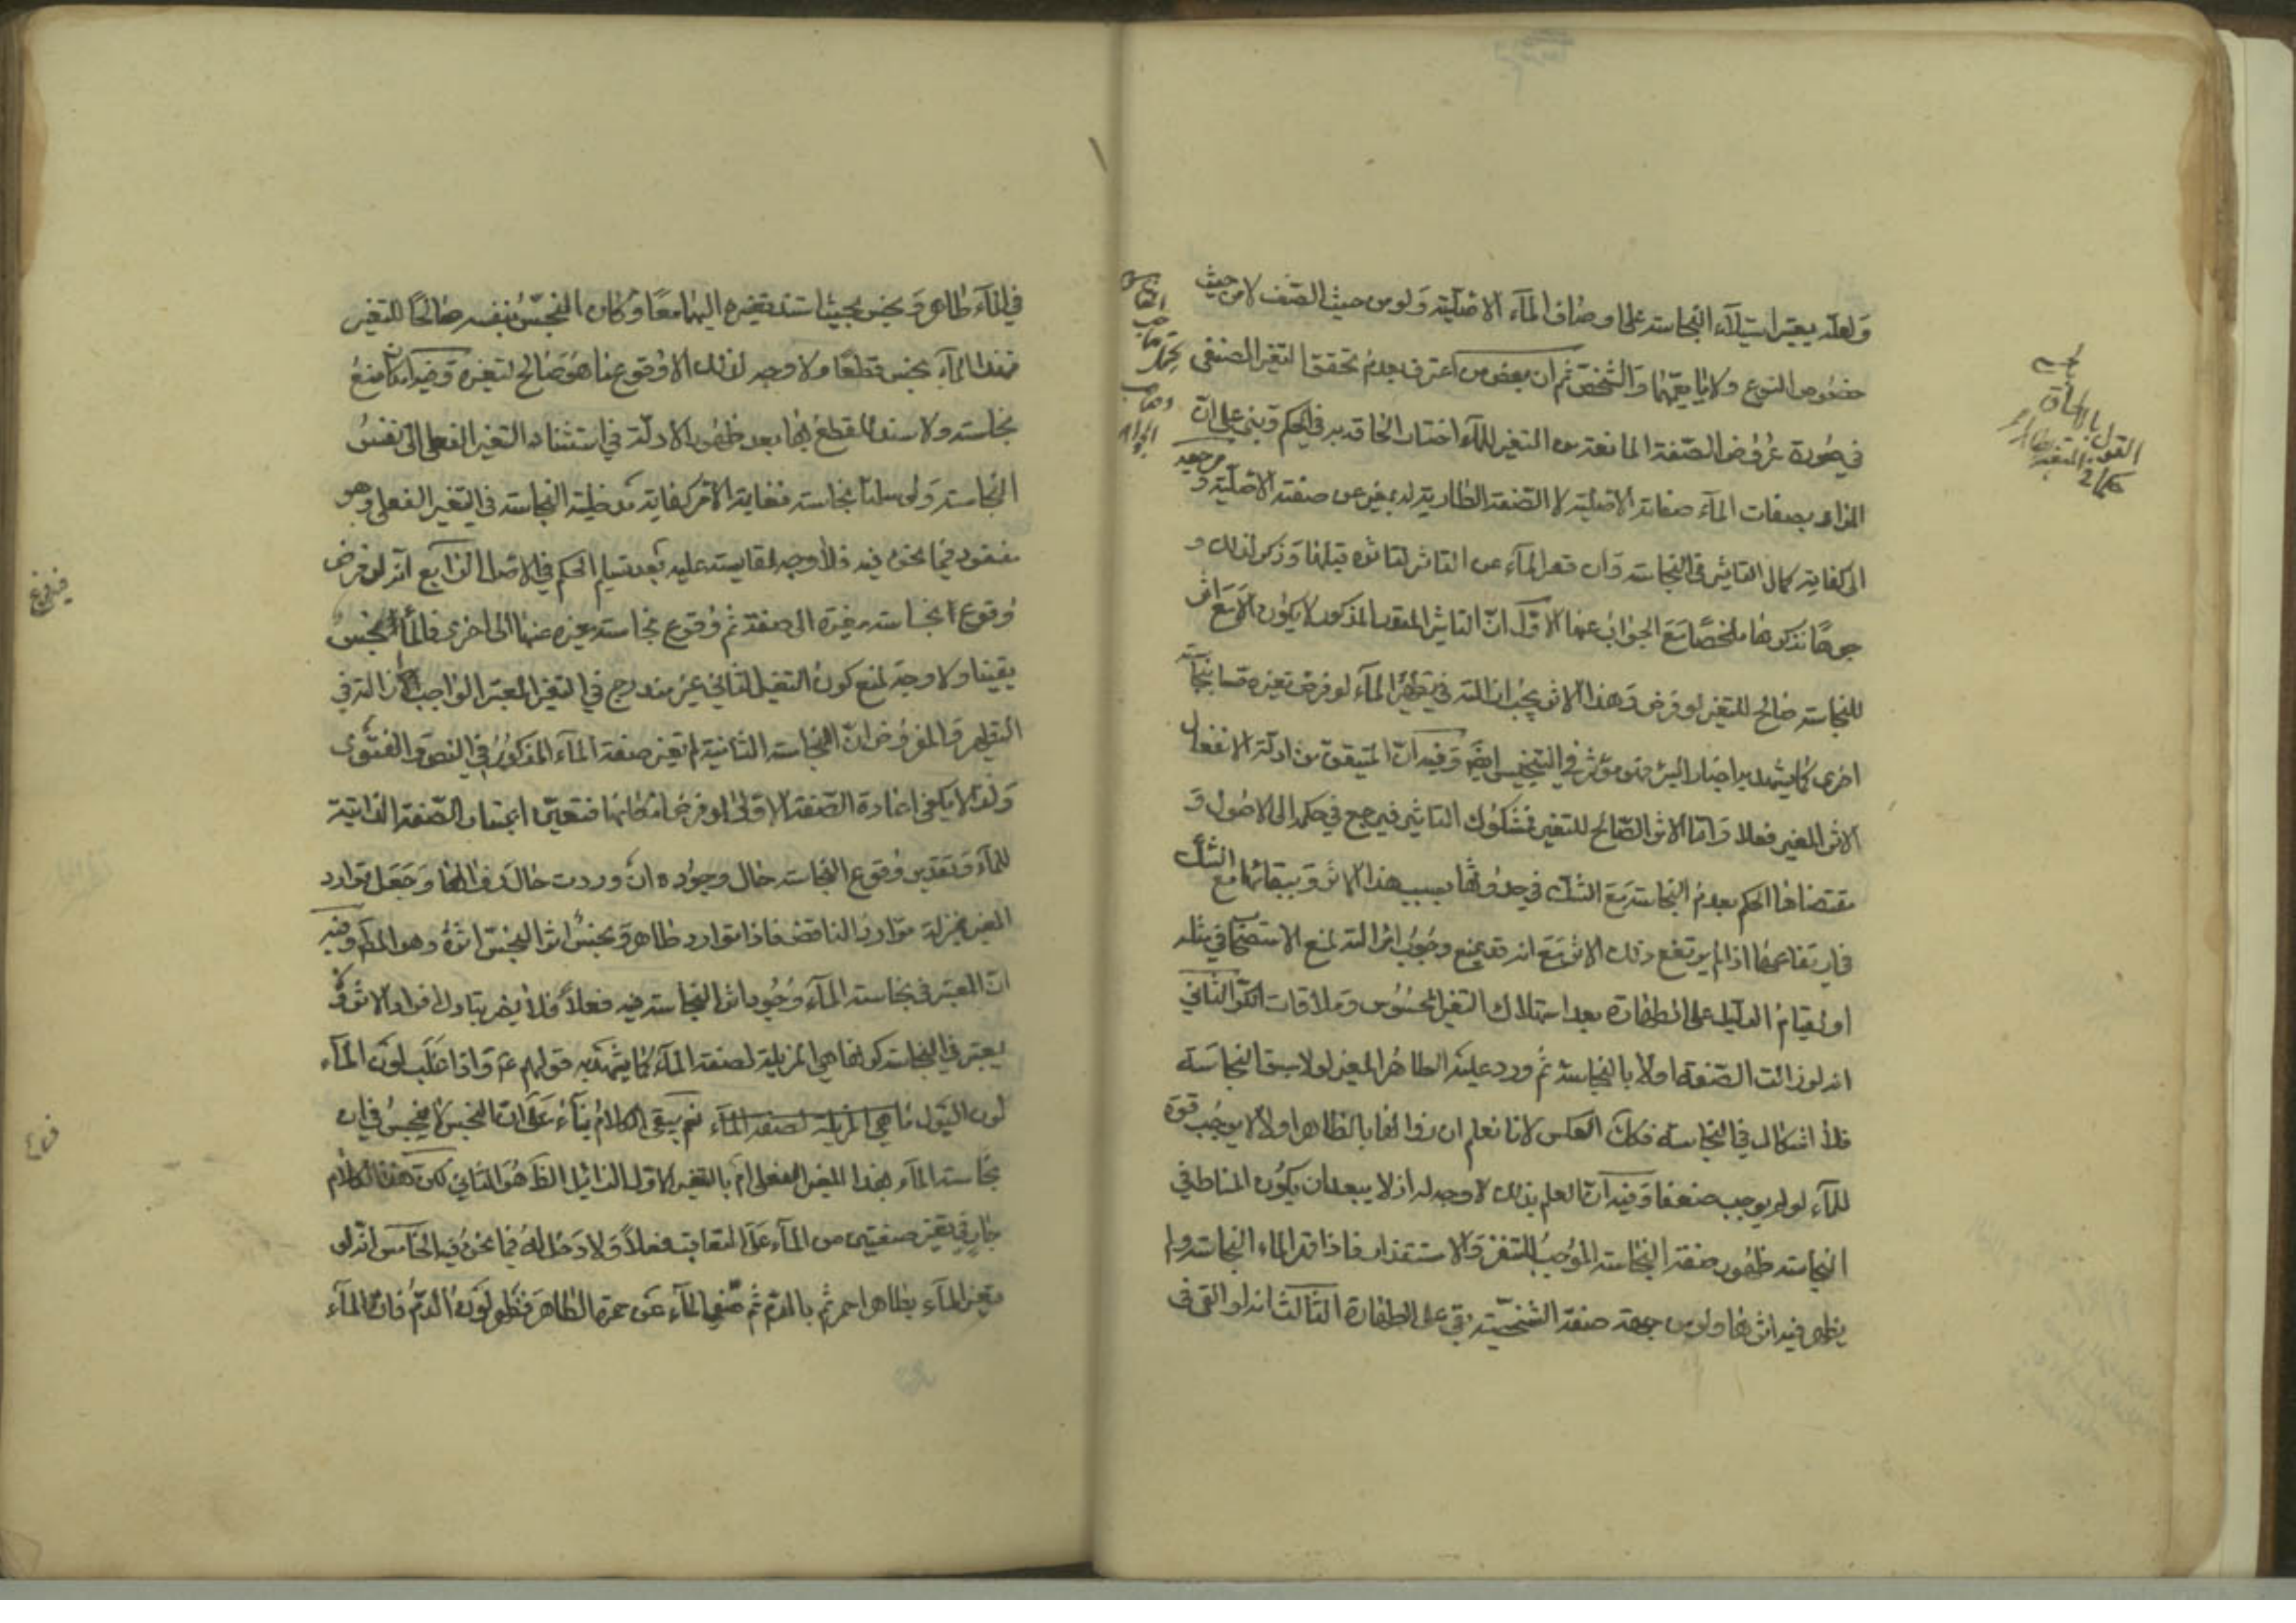 ولعله يعتبر استيلاء النجاسة على اوصاف الماء الاصلية ولو من حيث الصنف لا من حيث
خصوص النوع ولا ما يعمهما والشخص ثم ان بعض من اعترف بعدم تحقق التغير الصنفي
في صورة عروض الصفة المانعة من التغير للماء اختار الحاقه به في الحكم وبنى على ان
المراد بصفات الماء صفاته الاصلية لا الصفة الطارية لديه بغير عن صفته الاصلية و مرجعه
الى كفاية كمال التاثير في النجاسة وان قهر الماء عن التاثر لتاثره قبلها وذكر لذلك و
جوها نذكرها ملخصا مع الجواب عنها الاول ان التاثير المقدر المذكور لا يكون الا مع اثر
للنجاسة صالح للتغير لو فرض وهذا الاثر يجب ازالته في تطهير الماء لو فرض تغيره بنجاسة
اخرى كما يشهد به اخبار البئر فهو مؤثر في التنجيس ايضا وفيه ان المتيقن من ادلة الانفعال
الاثر المغير فعلا واما الاثر الصالح للتغير فمشكوك التاثير فيرجع في حكمه الى الاصول و
مقتضاها الحكم بعدم النجاسة مع الشك في حدوثها بسبب هذا الاثر وببقائها مع الشك
في ارتفاعها اذا لم يرتفع ذلك الاثر مع انه قد يمنع وجوب ازالته لمنع الاستصحاب في مثله
او لقيام الدليل على الطهارة بعد استهلاك التغير المحسوس وملاقات الكر الثاني
انه لو زالت الصفة اولا بالنجاسة ثم ورد عليه الطاهر المغير لولا سبق النجاسة
فلا اشكال في النجاسة فكك العكس لانا نعلم ان زوالها بالطاهر اولا لا يوجب قوة
للماء لو لم يوجب ضعفا وفيه ان العلم بذلك لا وجه له اذ لا يبعد ان يكون المناط في
النجاسة ظهور صفة النجاسة الموجب للتنفر والاستقذار فاذا قهر الماء النجاسة ولم
يظهر فيه اثرها ولو من جهة صفته الشخصية بقي على الطهارة الثالث انه لو القي في
في الماء طاهر ونجس بحيث استند تغيره اليهما معا وكان النجس بنفسه صالحا للتغير
فهذا الماء نجس قطعا ولا وجه لذلك الا وقوع ما هو صالح لتغيره وفيه امكان منع
نجاسته ولا سند للقطع بها بعد ظهور الادلة في استناد التغير الفعلي الى نفس
النجاسة ولو سلمنا نجاسته فغاية الامر كفاية مدخلية النجاسة في التغير الفعلي وهو
مفقود فيما نحن فيه فلا وجه لمقايسته عليه بعد تسليم الحكم في الاصل الرابع انه لو فرض
وقوع نجاسة مغيرة الى صفة ثم وقوع نجاسة مغيرة عنها الى اخرى فالماء نجس
يقينا ولا وجه لمنع كون التغير الثاني غير مندرج في التغير المعتبر الواجب ازالته في
التطهير والمفروض ان النجاسة الثانية لم تغير صفة الماء المذكور في النص والفتوى
ولذا لا يكفي اعادة الصفة الاولى لو فرض امكانها فتعين اعتبار الصفة الذاتية
للماء وتقدير وقوع النجاسة حال وجوده ان وردت حال زوالها وجعل توارد
المغير بمنزلة توارد الناقض فاذا توارد طاهر ونجس اثر النجس اثره وهو المط وفيه
ان المعتبر في نجاسة الماء وجود اثر النجاسة فيه فعلا فلا يضر تبادل افراد الاثر ولا
يعتبر في النجاسة كونها هي المزيلة لصفة الماء كما يشهد به قولهم ع واذا غلب لون الماء
لون البول ما هي المزيلة لصفة الماء نعم يبقى الكلام بناء على ان النجس لا ينجس في ان
نجاسة الماء بهذا المغير الفعلي ام بالتغير الاول الزائل الظ هو الثاني لكن هذا الكلام
جار في تغير صفتين من الماء على التعاقب فعلا ولا دخل له فيما نحن فيه الخامس انه لو
تغير الماء بطاهر احمر ثم بالدم ثم صفي الماء عن حمرة الطاهر فظهر لون الدم فان الماء